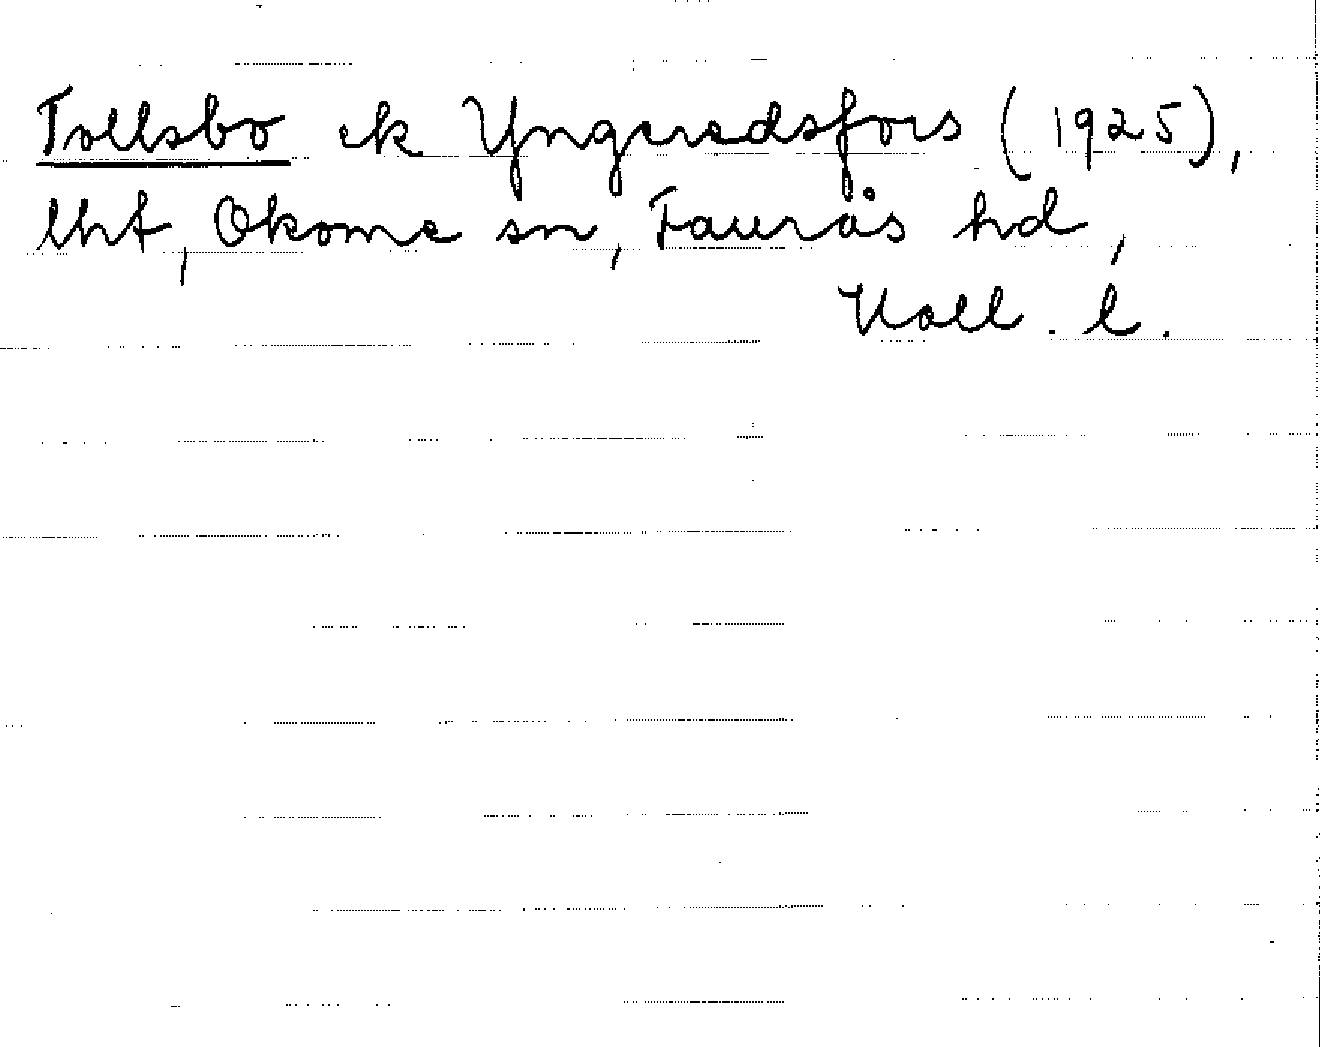 Tollsbo ek Yngeredsfors (1925),
lht, Okome sn, Faurås hd,
Hall. l.